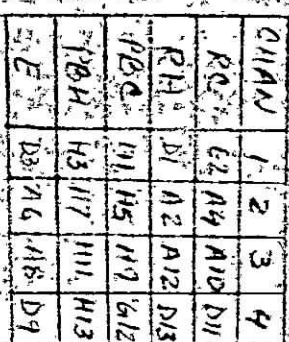 CHAN 1 2 3 4
RC A4 A10 D11
RH D1 A2 A12 D13
PBC H1 H5 H9 G12
PBH H3 H7 H11 H13
E D3 A6 A8 D9